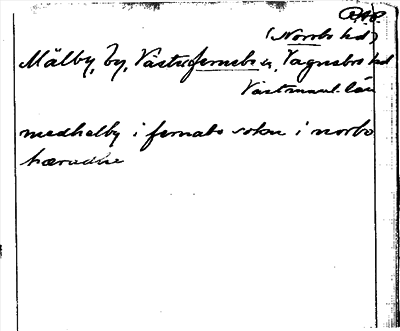 RAP.
(Norrbo hd)
Mälby, by, Västerfernebo sn, Vagnsbro hd
Västmanl. län
medhelby i fernabo sokn i norbo
hæradhe